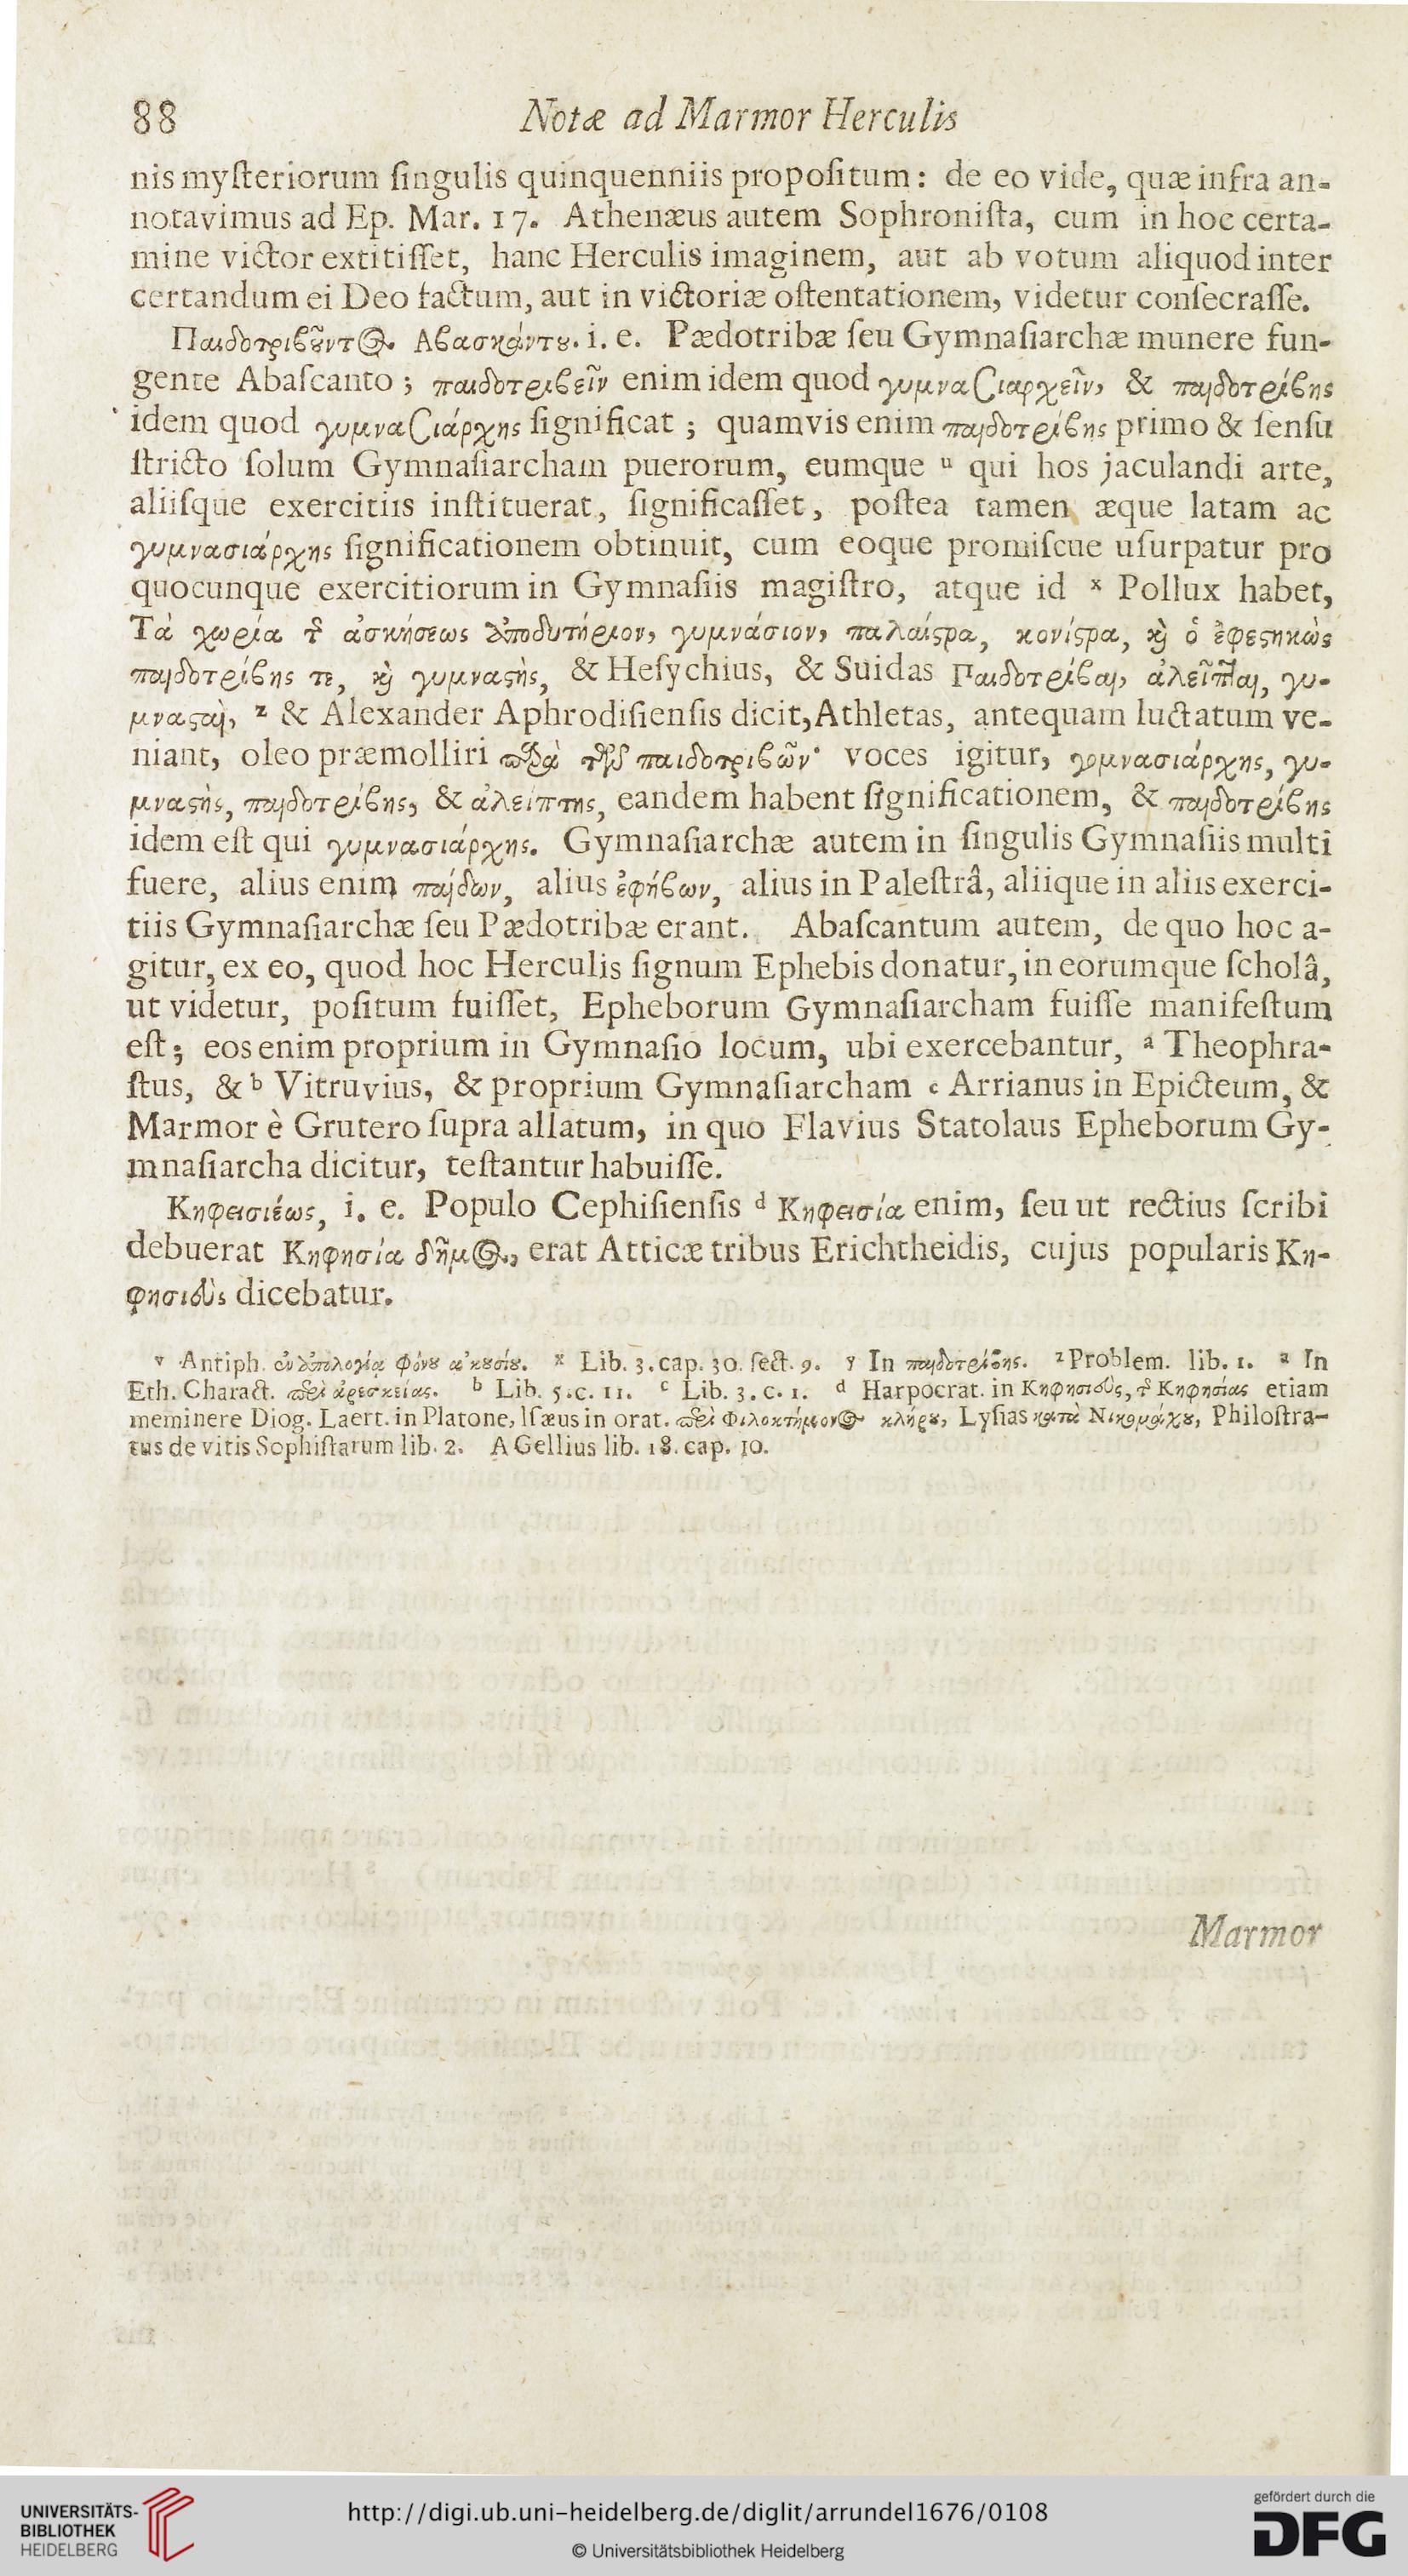 88 Notæ ad Marmor Herculis
nis myſteriorum ſingulis quinquenniis propoſitum: de eo vide, quæ infra an-
notavimus ad Ep. Mar. 17. Athenæus autem Sophroniſta, cum in hoc certa-
mine victor extitiſſet, hanc Herculis imaginem, aut ab votum aliquod inter
certandum ei Deo factum, aut in victoriæ oſtentationem, videtur conſecraſſe.
Παιδοτριβοῦντος Αβασκάντου. i. e. Pædotribæ ſeu Gymnaſiarchæ munere fun-
gente Abaſcanto; παιδοτριβεῖν enim idem quod γυμνασιαρχεῖν, & παιδοτρίβης
idem quod γυμνασιάρχης ſignificat; quamvis enim παιδοτρίβης primo & ſenſu
ſtricto ſolum Gymnaſiarcham puerorum, eumque u qui hos jaculandi arte,
aliiſque exercitiis inſtituerat, ſignificaſſet, poſtea tamen æque latam ac
γυμνασιάρχης ſignificationem obtinuit, cum eoque promiſcue uſurpatur pro
quocunque exercitiorum in Gymnaſiis magiſtro, atque id x Pollux habet,
Τὰ χωρία τῆς ἀσκήσεως ἀποδυτήριον, γυμνάσιον, παλαίςρα, κονίςρα, καὶ ὁ ἐφεςηκὼς
παιδοτρίβης τε, καὶ γυμναςὴς, & Heſychius, & Suidas Παιδοτρίβαι, ἀλεῖπται, γυ-
μναςαὶ, z & Alexander Aphrodiſienſis dicit, Athletas, antequam luctatum ve-
niant, oleo præmolliri παρὰ τῶν παιδοτριβῶν· voces igitur, γυμνασιάρχης, γυ-
μναςὴς, παιδοτρίβης, & ἀλείπτης, eandem habent ſignificationem, & παιδοτρίβης
idem eſt qui γυμνασιάρχης. Gymnaſiarchæ autem in ſingulis Gymnaſiis multi
fuere, alius enim παίδων, alius ἐφήβων, alius in Paleſtrâ, aliique in aliis exerci-
tiis Gymnaſiarchæ ſeu Pædotribæ erant. Abaſcantum autem, de quo hoc a-
gitur, ex eo, quod hoc Herculis ſignum Ephebis donatur, in eorumque ſcholâ,
ut videtur, poſitum fuiſſet, Epheborum Gymnaſiarcham fuiſſe manifeſtum
eſt; eos enim proprium in Gymnaſio locum, ubi exercebantur, a Theophra-
ſtus, & b Vitruvius, & proprium Gymnaſiarcham c Arrianus in Epicteum, &
Marmor è Grutero ſupra allatum, in quo Flavius Statolaus Epheborum Gy-
mnaſiarcha dicitur, teſtantur habuiſſe.
Κηφεισιέως, i. e. Populo Cephiſienſis d Κηφεισία enim, ſeu ut rectius ſcribi
debuerat Κηφησία δῆμος, erat Atticæ tribus Erichtheidis, cujus popularis Κη-
φησιεὺς dicebatur.
v Antiph. ἐν ἀπολογίᾳ φόνου ἀκουσίου. x Lib. 3. cap. 30. ſect. 9. y In παιδοτρίβης. z Problem. lib. 1. a In
Eth. Charact. περὶ ἀρεσκείας. b Lib. 5. c. 11. c Lib. 3. c. 1. d Harpocrat. in Κηφησιεὺς, τῆς Κηφησίας etiam
meminere Diog. Laert. in Platone, Iſæus in orat. περὶ Φιλοκτήμονος κλήρου, Lyſias κατὰ Νικομάχου, Philoſtra-
tus de vitis Sophiſtarum lib. 2. A Gellius lib. 18. cap. 10.
Marmor
UNIVERSITÄTS-
BIBLIOTHEK
HEIDELBERG
http://digi.ub.uni-heidelberg.de/diglit/arrundel1676/0108
© Universitätsbibliothek Heidelberg
gefördert durch die
DFG